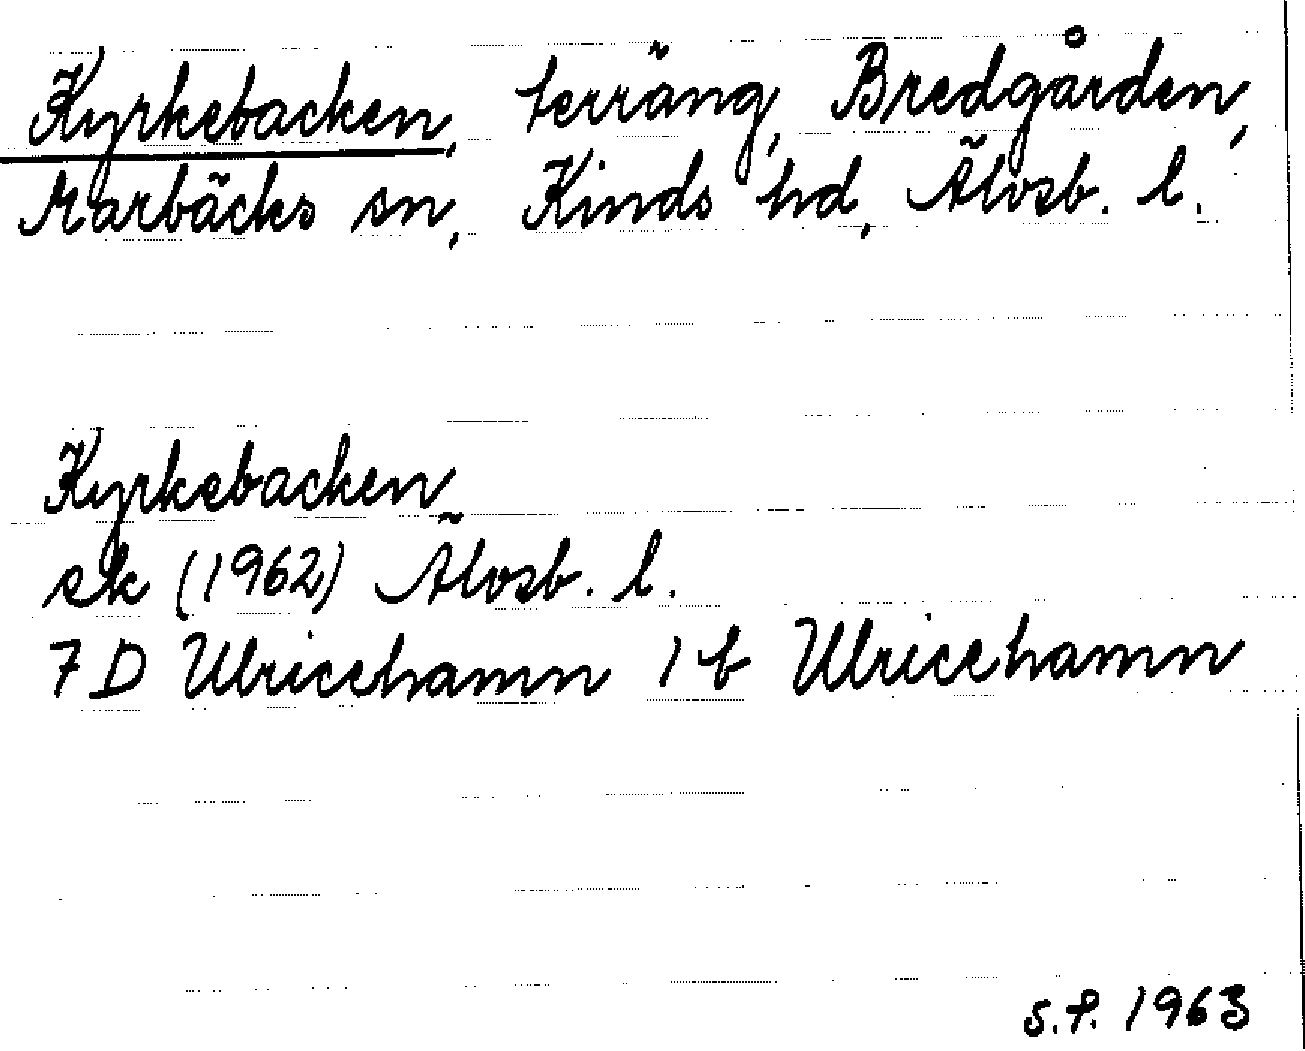 Kyrkebacken, terräng, Bredgården,
Marbäcks sn, Kinds hd, Älvsb. l.
Kyrkebacken
ek (1962) Älvsb. l.
7 D Ulricehamn 1 b Ulricehamn
S.F. 1963